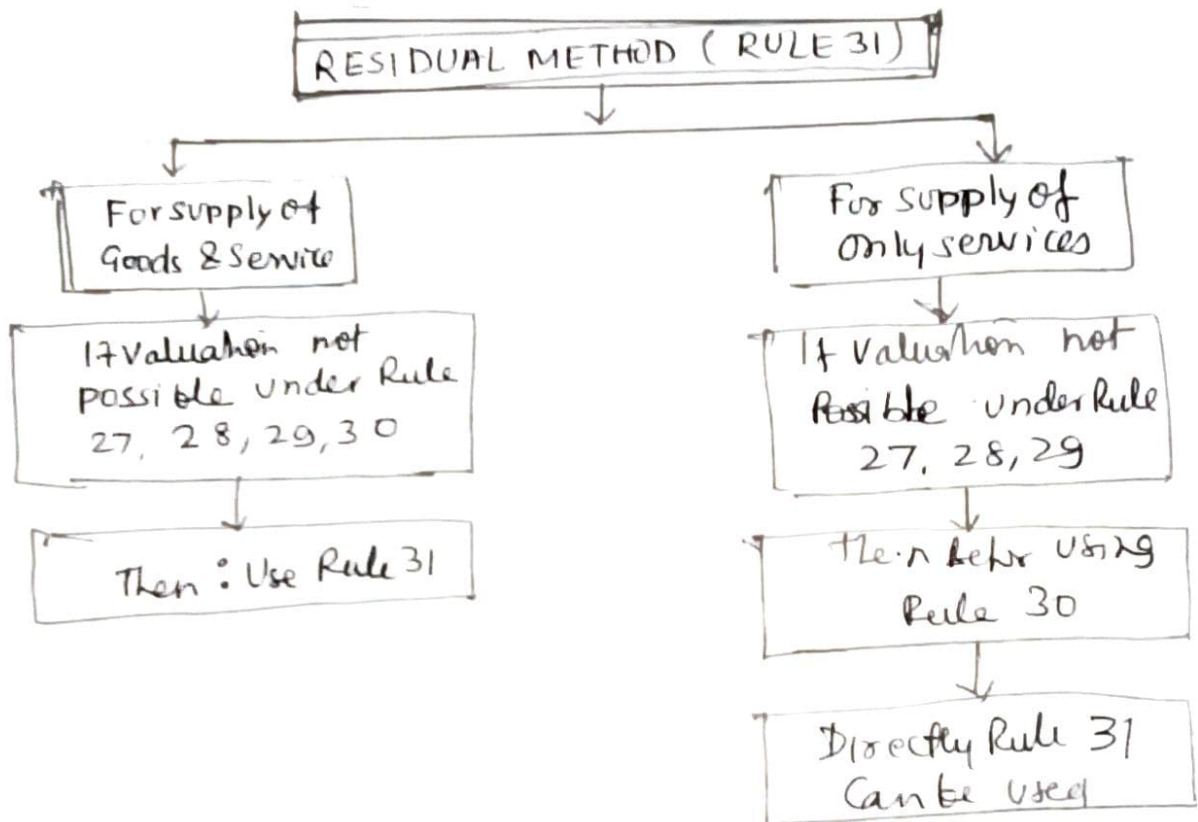 RESIDUAL METHOD ( RULE 31)
For supply of
Goods & Service
If valuation not
possible under Rule
27, 28, 29, 30
Then : Use Rule 31
For supply of
only services
If valuation not
Possible under Rule
27, 28, 29
then using
Rule 30
Directly Rule 31
Can be used